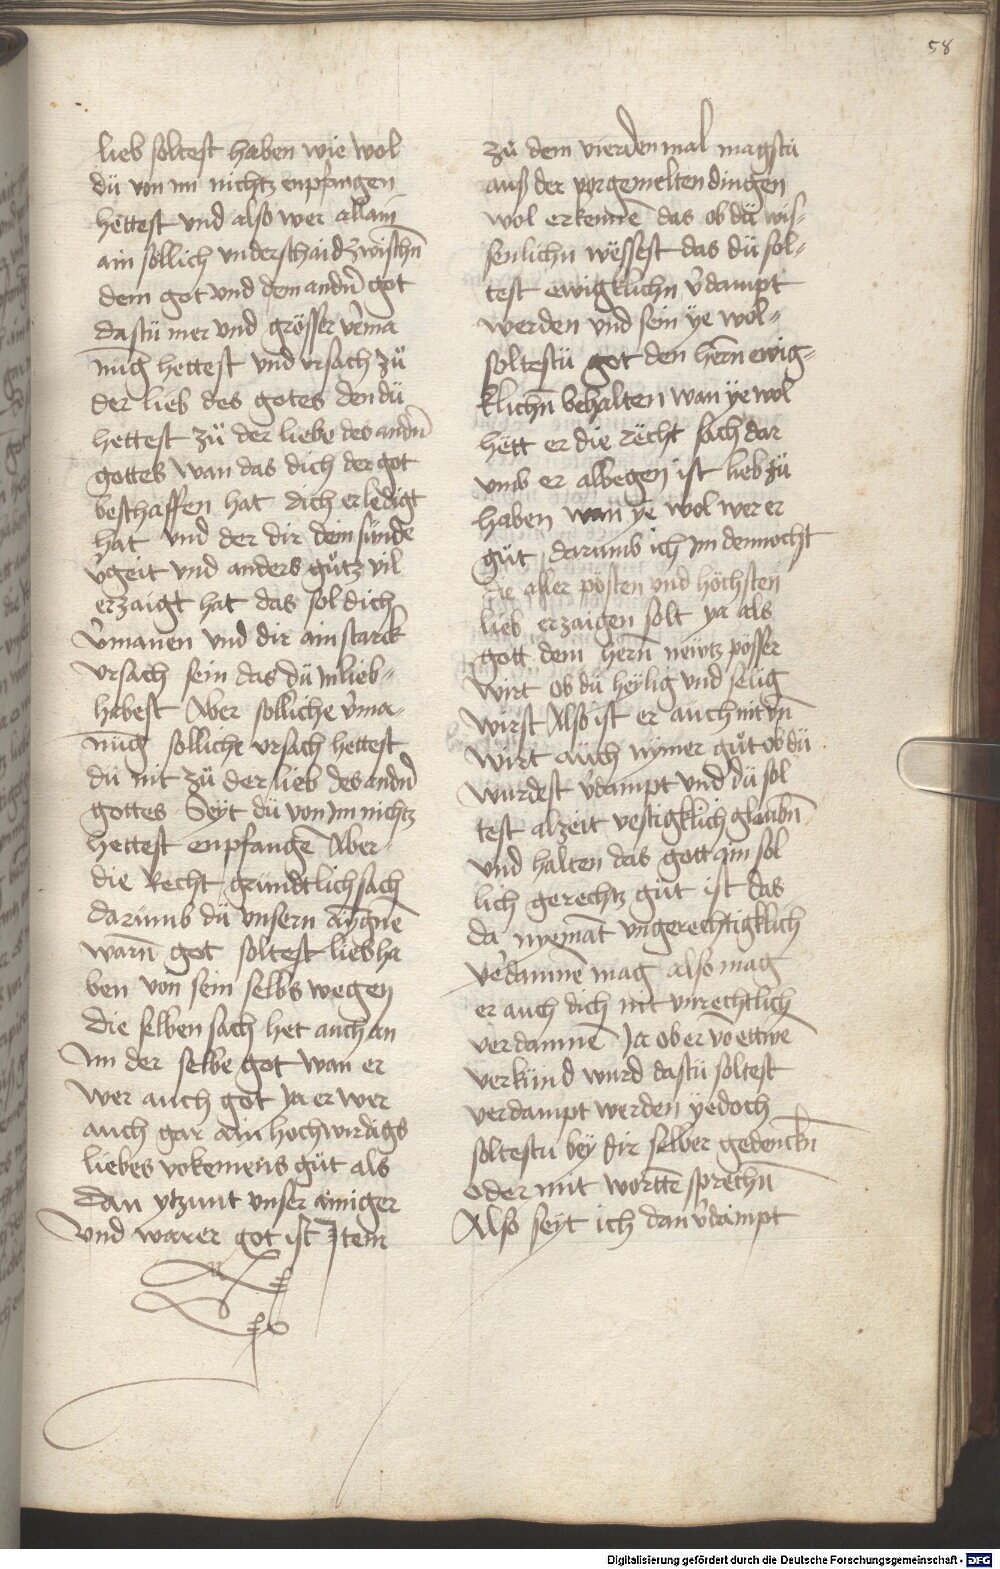 58
lieb soltest haben wie wol
dü von im nichtz enpfangen
hettest vnd also wer allain
ain söllich vnderschaid zwischn̄
dem got vnd dem andn̄ got
dastü mer vnd grösser v̉ma
nūg hettest vnd vrsach zů
der lieb des gotes den dü
hettest zů der liebe des andn̄
gottes wan das dich der got
beschaffen hat dich erledigt
hat vnd der dir dein sünde
v̉geit vnd anders gůtz vil
erzaigt hat das sol dich
v̉manen vnd dir ain starck
vrsach sein das dü in lieb-
habest Aber solliche v̉ma-
nūg solliche vrsach hettest
dü nit zů der lieb des andn̄
gottes Seyt dü von im nichtz
hettest enpfangē Aber
die Recht gründtlich sach
darümb dü vnsern aygnē
warn̄ got soltest lieb ha
ben von sein selbs wegen
die selben sach het auch an
im der selbe got wan er
wer auch got ya er wer
auch gar ain hochwirdigs
liebes vokemens gůt als
dan ytzunt vnser ainiger
vnd warer got ist Item
zů dem vierden mal magstü
auß der vorgemelten dingen
wol erkennē das ob dü wis-
senlichn wëssest das dü sol-
test ewigklichn v̉dampt
werden vnd sein ÿe wol-
soltestü got den herrn ewig-
klichn̄ behalten wan ÿe wol
hëtt er die rëcht sach dar
vmb er albegen ist lieb zü
haben wan ÿe wol wer er
gůt darümb ich im dennocht
die aller pösten vnd höchsten
lieb erzaigen solt ya als
gott dem hern̄ nëwtz pösser
wirt ob dü heÿlig vnd selig
wirst Also ist er auch nit vn̄
wirt auch nÿmer gůt ob dü
wurdest v̉dampt vnd dü sol
test alzeit vestigklich glaubn̄
vnd halten das gott ain sol
lich gerechtz gůt ist das
da nyemāt vngerechtigklich
v̉damnē mag also mag
er auch dich nit vnrechtlich
verdamnē Ja ob er vō ettwē
verkünd wurd dastü soltest
verdampt werden yedoch
soltestu beÿ dir selber gedenckn̄
oder mit wortē sprechn̄
Also seÿt ich dan v̉dampt
Digitalisierung gefördert durch die Deutsche Forschungsgemeinschaft - DFG